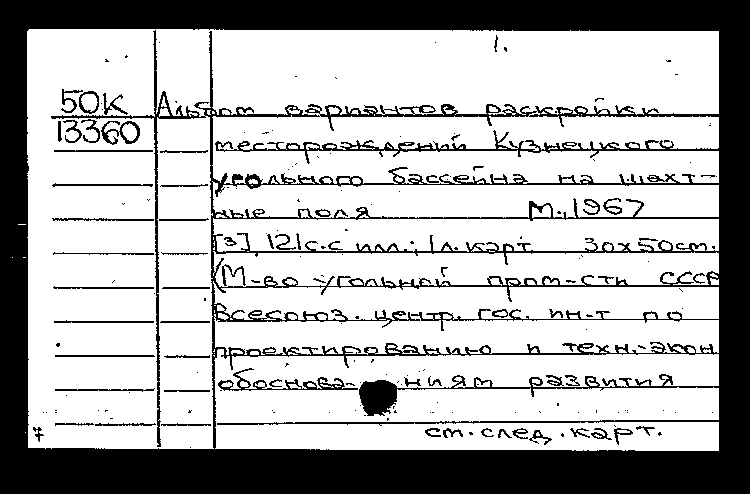 1.
50К Альбом вариантов раскройки
13360 месторождений Кузнецкого
угольного бассейна на шахт-
ные поля М., 1967
[3], 121с.с илл.; 1л.карт 30х50см.
(М-во угольной пром-сти СССР
Всесоюз. центр. гос. ин-т по
проектированию и техн.-экон
обоснова-ниям развития
см.след.карт.
7